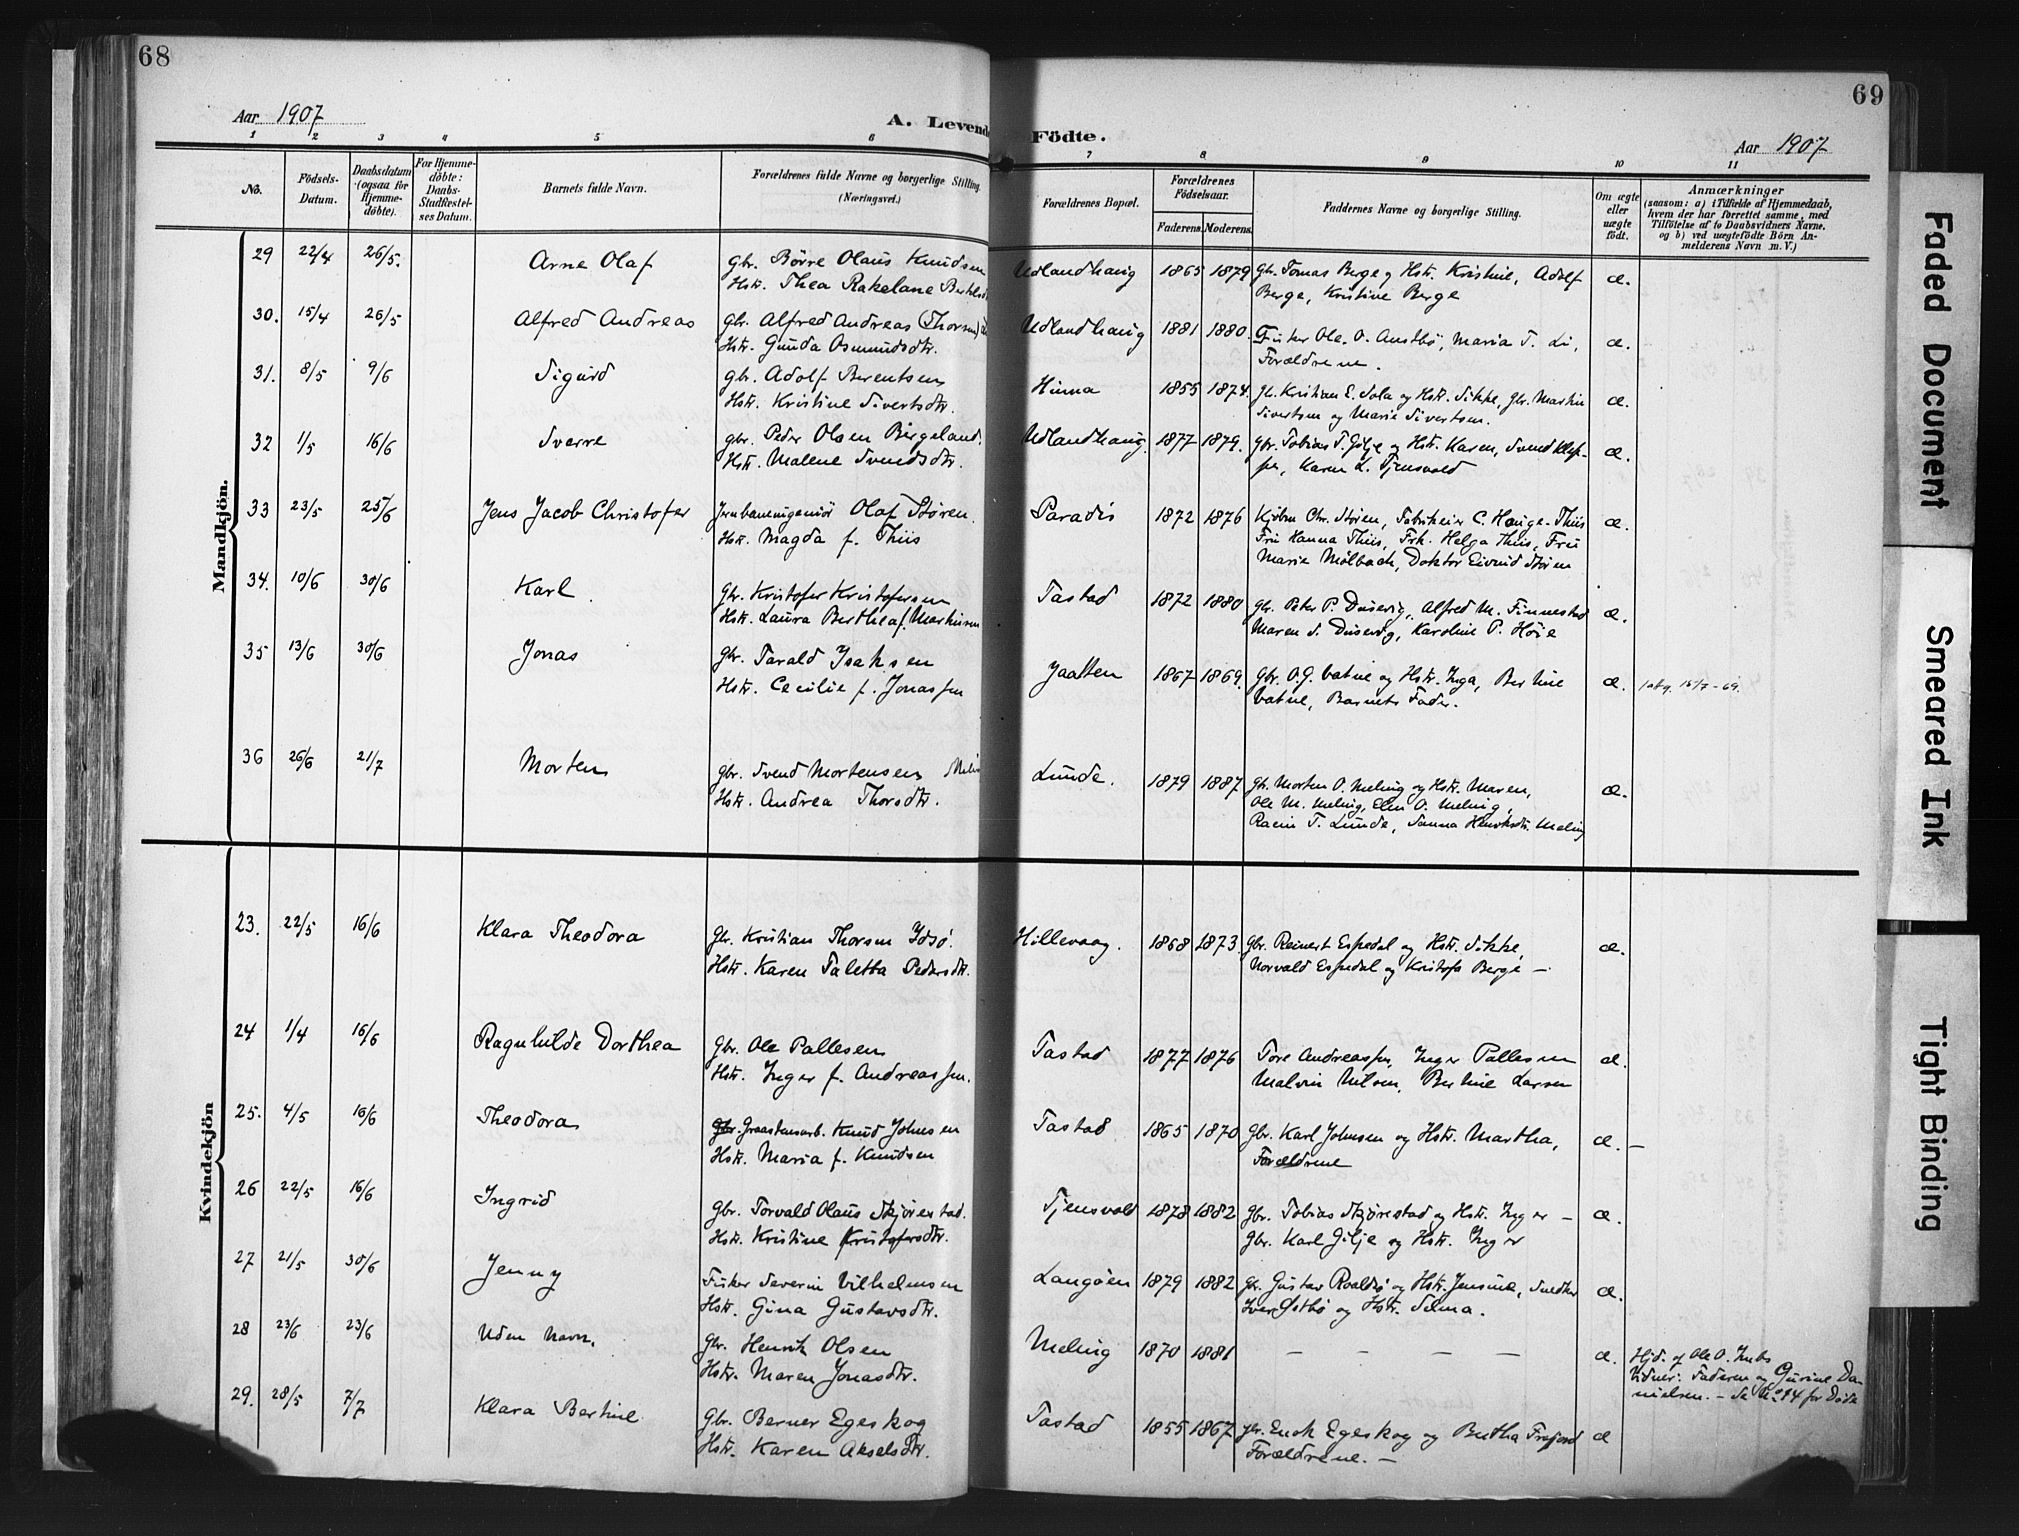 68
Aar 1907
A. Levende
1 2 3 4 5 6
No.
Födsels-
Datum.
Daabsdatum
(ogsaa for
Hjemme-
döbte).
For Hjemme-
döbte:
Daabs-
Stadfæstel-
ses Datum.
Barnets fulde Navn.
Forældrenes fulde Navne og borgerlige Stilling.
(Næringsvei.)
Mandkjön.
29 22/4 26/5. Arne Olaf gbr. Børre Olaus Knudsen
Hstr. Thea Rakelane
30. 15/4 26/5 Alfred Andreas gbr. Alfred Andreas (Thorsen)
Hstr. Gunda Osmundsdtr.
31. 8/5 9/6 Sigurd gbr. Adolf Berentsen
Hstr. Kristine Sivertsdtr.
32 1/5 16/6 Sverre gbr. Peder Olsen Birgeland.
Hstr. Malene Svendsdtr.
33 23/5 25/6 Jens Jacob Christofer Jernbaneingeniør Olaf Støren.
Hstr. Magda f. Thiis
34. 10/6 30/6 Karl gbr. Kristofer Kristofersen
Hstr. Laura Berthea f. Markussen
35 13/6 30/6 Jonas gbr. Tarald Isaksen
Hstr. Cecilie f. Jonassen
36 26/6 21/7 Morten gbr. Svend Mortensen
Hstr. Andrea Thorsdtr.
Kvindekjön
23. 22/5 16/6 Klara Theodora gbr. Kristian Thorsen Idsö.
Hstr. Karen Taletta Pedersdtr.
24 1/4 16/6 Ragnhilde Dorthea gbr. Ole Pallesen
Hstr. Inger f. Andreassen.
25. 4/5 16/6 Theodora Graastensarb. Knud Johnsen
Hstr. Maria f. Knudsen
26 22/5 16/6 Ingrid gbr. Torvald Olaus Skjørestad.
Hstr. Kristine Kristofersdtr.
27 21/5 30/6 Jenny Fisker Severin Vilhelmsen
Hstr. Gina Gustavsdtr.
28 23/6 23/6 Uden Navn. gbr. Henrik Olsen
Hstr. Maren Jonasdtr.
29. 28/5 7/7 Klara Bertine gbr. Berner Egeskog
Hstr. Karen Akselsdtr.
69
Födte.
Aar 1907
7 8 9 10 11
Forældrenes Bopæl.
Forældrenes
Födselsaar.
Faderens. Moderens.
Faddernes Navne og borgerlige Stilling.
Om ægte
eller
uægte
födt.
Anmærkninger
(saasom: a) i Tilfælde af Hjemmedaab,
hvem der har forrettet samme, med
Tilföielse af to Daabsvidners Navne,
og b) ved uægtefödte Börn An-
melderens Navn m. V.)
Udlandhaug 1865 1879 gbr. Tomas Berge og Hstr. Kristine, Adolf
Berge, Kristine Berge æ.
Udlandhaug 1881 1880. Fisker Ole O. Austbö, Maria T. Li,
Forældrene. æ.
Hinna 1855 1874. gbr. Kristian E. Sola og Hstr. Sikke, gbr. Martin
Sivertsen og Marie Sivertsen. æ.
Udlandhaug. 1877 1879. gbr. Tobias T. Gilje og Hstr. Karen, Svend Klep-
pe, Karen L. Tjensvold æ.
Paradis 1872 1876 Kjöbm Chr. Støren, Fabrikeier C. Hauge-Thiis
Fru Hanna Thiis, Frk. Helga Thiis, Fru
Marie Mølbach, Doktor Eivind Støren æ.
Tastad 1872 1880 gbr. Peter P. Dusevig, Alfred M. Finnestad
Maren S. Dusevig, Karoline P. Høie æ.
Jaatten 1867 1869. gbr. O.G. Vatne og Hstr. Inga, Bertine
Vatne, Barnets Fader. æ. 15/7-69.
Lunde. 1879 1887 gbr. Morten O. Meling og Hstr. Maren,
Ole M. Meling, Elen O. Meling,
T. Lunde, Sanna Henriksdtr. Meling æ.
Hillevaag. 1868 1873. gbr. Reinert Espedal og Hstr. Sikke,
Norvald Espedal og Kristofa Berge — æ.
Tastad 1877 1876 Tore Andreassen, Inger Pallesen
Malvin Nilsen, Bertine Larsen æ.
Tastad 1865 1870 gbr. Karl Johnsen og Hstr. Martha,
Forældrene æ. —
Tjensvold 1878 1882 gbr. Tobias Skjørestad og Hstr. Inger —
gbr. Karl Gilje og Hstr. Inger æ.
Langøen 1879 1882 gbr. Gustav Roaldsø og Hstr. Jensine, Snedker
Iver Østbø og Hstr. Selma. æ.
Meling 1870 1881 — — — — — æ. Hjd. af Ole O.
Vidner: Faderen og Gurine Da-
nielsen. — Se No 14 for Døde
Tastad 1855 1867 gbr. Enok Egeskog og Bertha Frafjord
Forældrene. — æ
Faded Document
Smeared Ink
Tight Binding